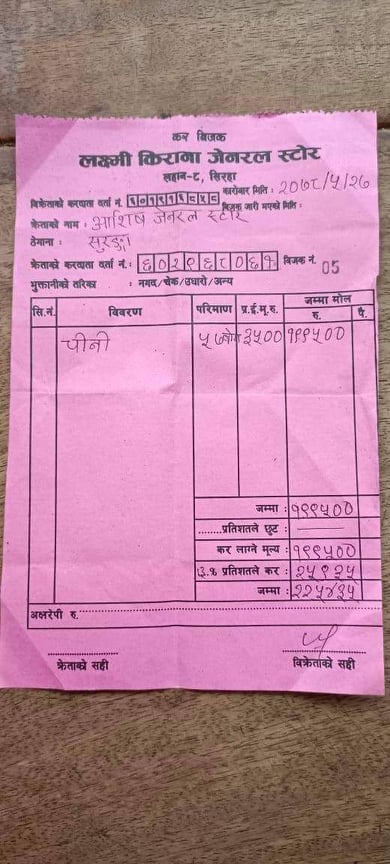 कर बिजक
लक्ष्मी किराना जेनरल स्टोर
लहान-८, सिरहा
कारोबार मिति : २०७८/५/२७
विक्रेताको करदाता दर्ता नं.
बिजक जारी भएको मिति :
क्रेताको नाम : आशिष जेनरल स्टोर
ठेगाना : सुरुङ्गा
क्रेताको करदाता दर्ता नं. : ६०२९६८०६१ बिजक नं. 05
भुक्तानीको तरिका : नगद/चेक/उधारो/अन्य
सि.नं. विवरण परिमाण प्र.ई.मू.रु. जम्मा मोल
रु. पै.
चीनी ५७ ३५०० १९९५००
जम्मा : १९९५००
........प्रतिशतले छुट :
कर लाग्ने मूल्य : १९९५००
१३.% प्रतिशतले कर : २५९३५
जम्मा : २२५४३५
अक्षरेपी रु.
क्रेताको सही विक्रेताको सही